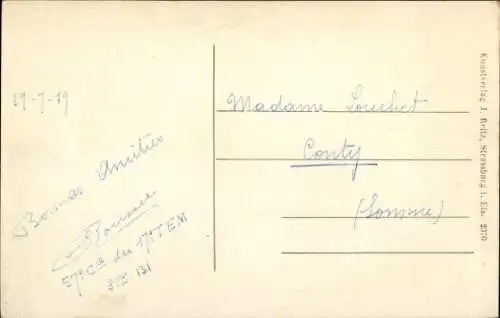 19-7-19
Bonnes Amitiés
57e Cie du 17e TEM
S.P. 131
Madame Louchet
Conty
(Somme)
Kunstverlag J. Reitz, Strassburg i. Els. 2370